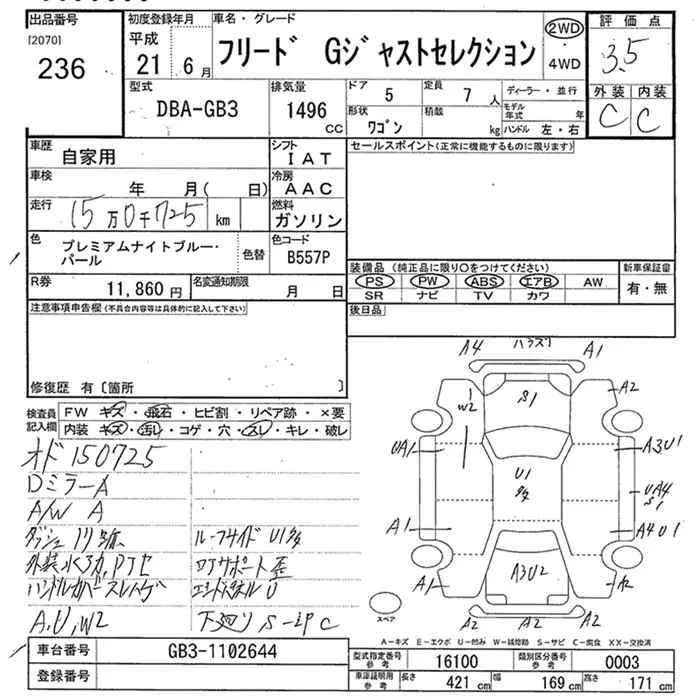 出品番号 初度登録年月 車名・グレード 評価点
[2070] 平成 フリード Gジャストセレクション 2WD 3.5
236 21 6月 ・4WD
外装 内装
C C
型式 排気量 ドア 定員 ディーラー・並行
DBA-GB3 1496 CC 5 7 人 モデル年式 年
形状 積載
ワゴン kg ハンドル 左・右
車歴 自家用 シフト IAT セールスポイント(正常に機能するものに限ります)
車検 年 月( 日) 冷房 AAC
走行 15万0千725 km 燃料 ガソリン
色 プレミアムナイトブルー・パール 色替 色コード B557P
装備品(純正品に限り○をつけてください) 新車保証書
PS PW ABS エアB AW 有・無
SR ナビ TV カワ
R券 11,860円 名変通知期限 月 日
後日品
注意事項申告欄(不具合内容等は具体的に記入して下さい)
修復歴 有〔箇所 〕
検査員記入欄 FW キズ・飛石・ヒビ割・リペア跡・×要
内装 キズ・汚レ・コゲ・穴・スレ・キレ・破レ
オド150725
DミラーA
A/W A
ルーフサイド U1
コアサポート歪
エンドパネルU
A,U,W2
下廻りS-
A4 A1
S1
A2
W2
UA1 A3U1
U1
UA4
S1
A1 A4U1
A3U2
A1
A2 A2
スペア
A-キズ E-エクボ U-凹み W-補修跡 S-サビ C-腐食 XX-交換済
車台番号 GB3-1102644
登録番号
型式指定番号 参考 16100 類別区分番号 参考 0003
車庫証明用 参考 長さ 421 cm 幅 169 cm 高さ 171 cm